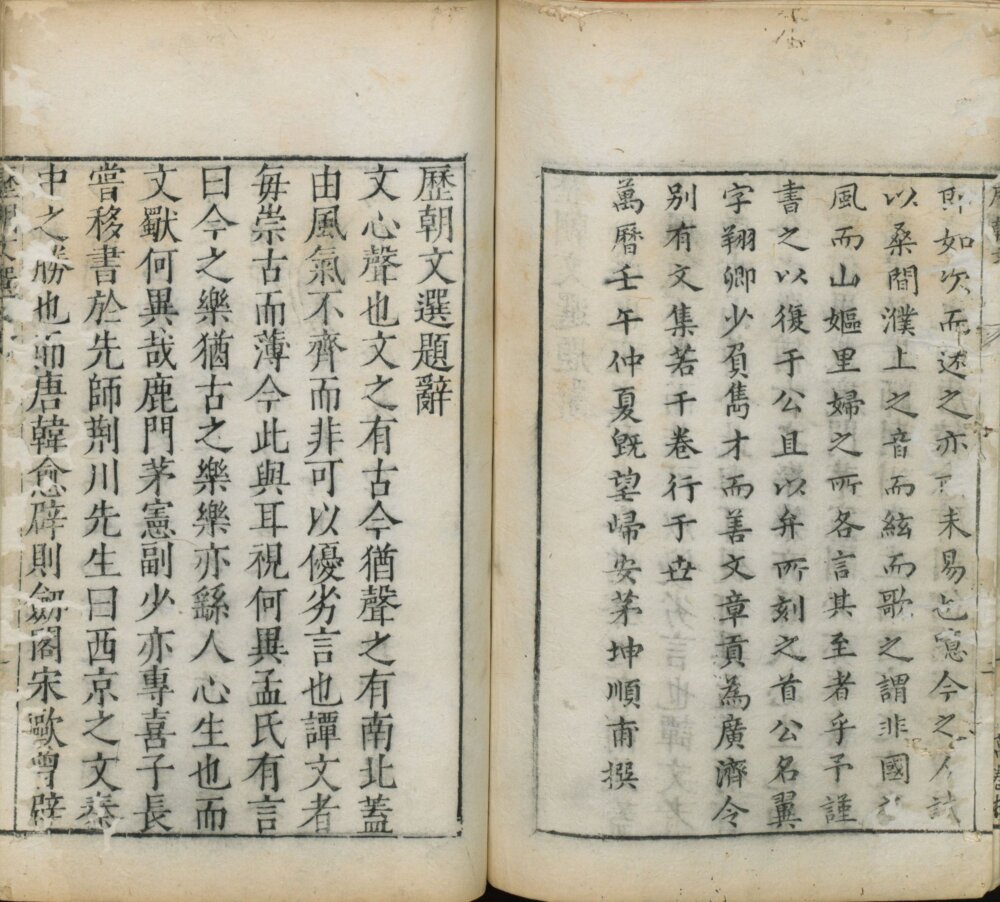 即如次而述之亦未易也噫今之人誠
以桑間濮上之音而絃而歌之謂非國
風而山嫗里婦之所各言其至者乎予謹
書之以復于公且以弁所刻之首公名翼
字翔卿少負雋才而善文章貢為廣濟令
別有文集若干卷行于世
萬曆壬午仲夏旣望歸安茅坤順甫撰
歷朝文選題辭
文心聲也文之有古今猶聲之有南北蓋
由風氣不齊而非可以優劣言也譚文者
每崇古而薄今此與耳視何異孟氏有言
曰今之樂猶古之樂樂亦繇人心生也而
文獸何異哉鹿門茅憲副少亦專喜子長
嘗移書於先師荆川先生曰西京之文秦
中之勝也而唐韓愈辟則劒閣宋歐曾辟